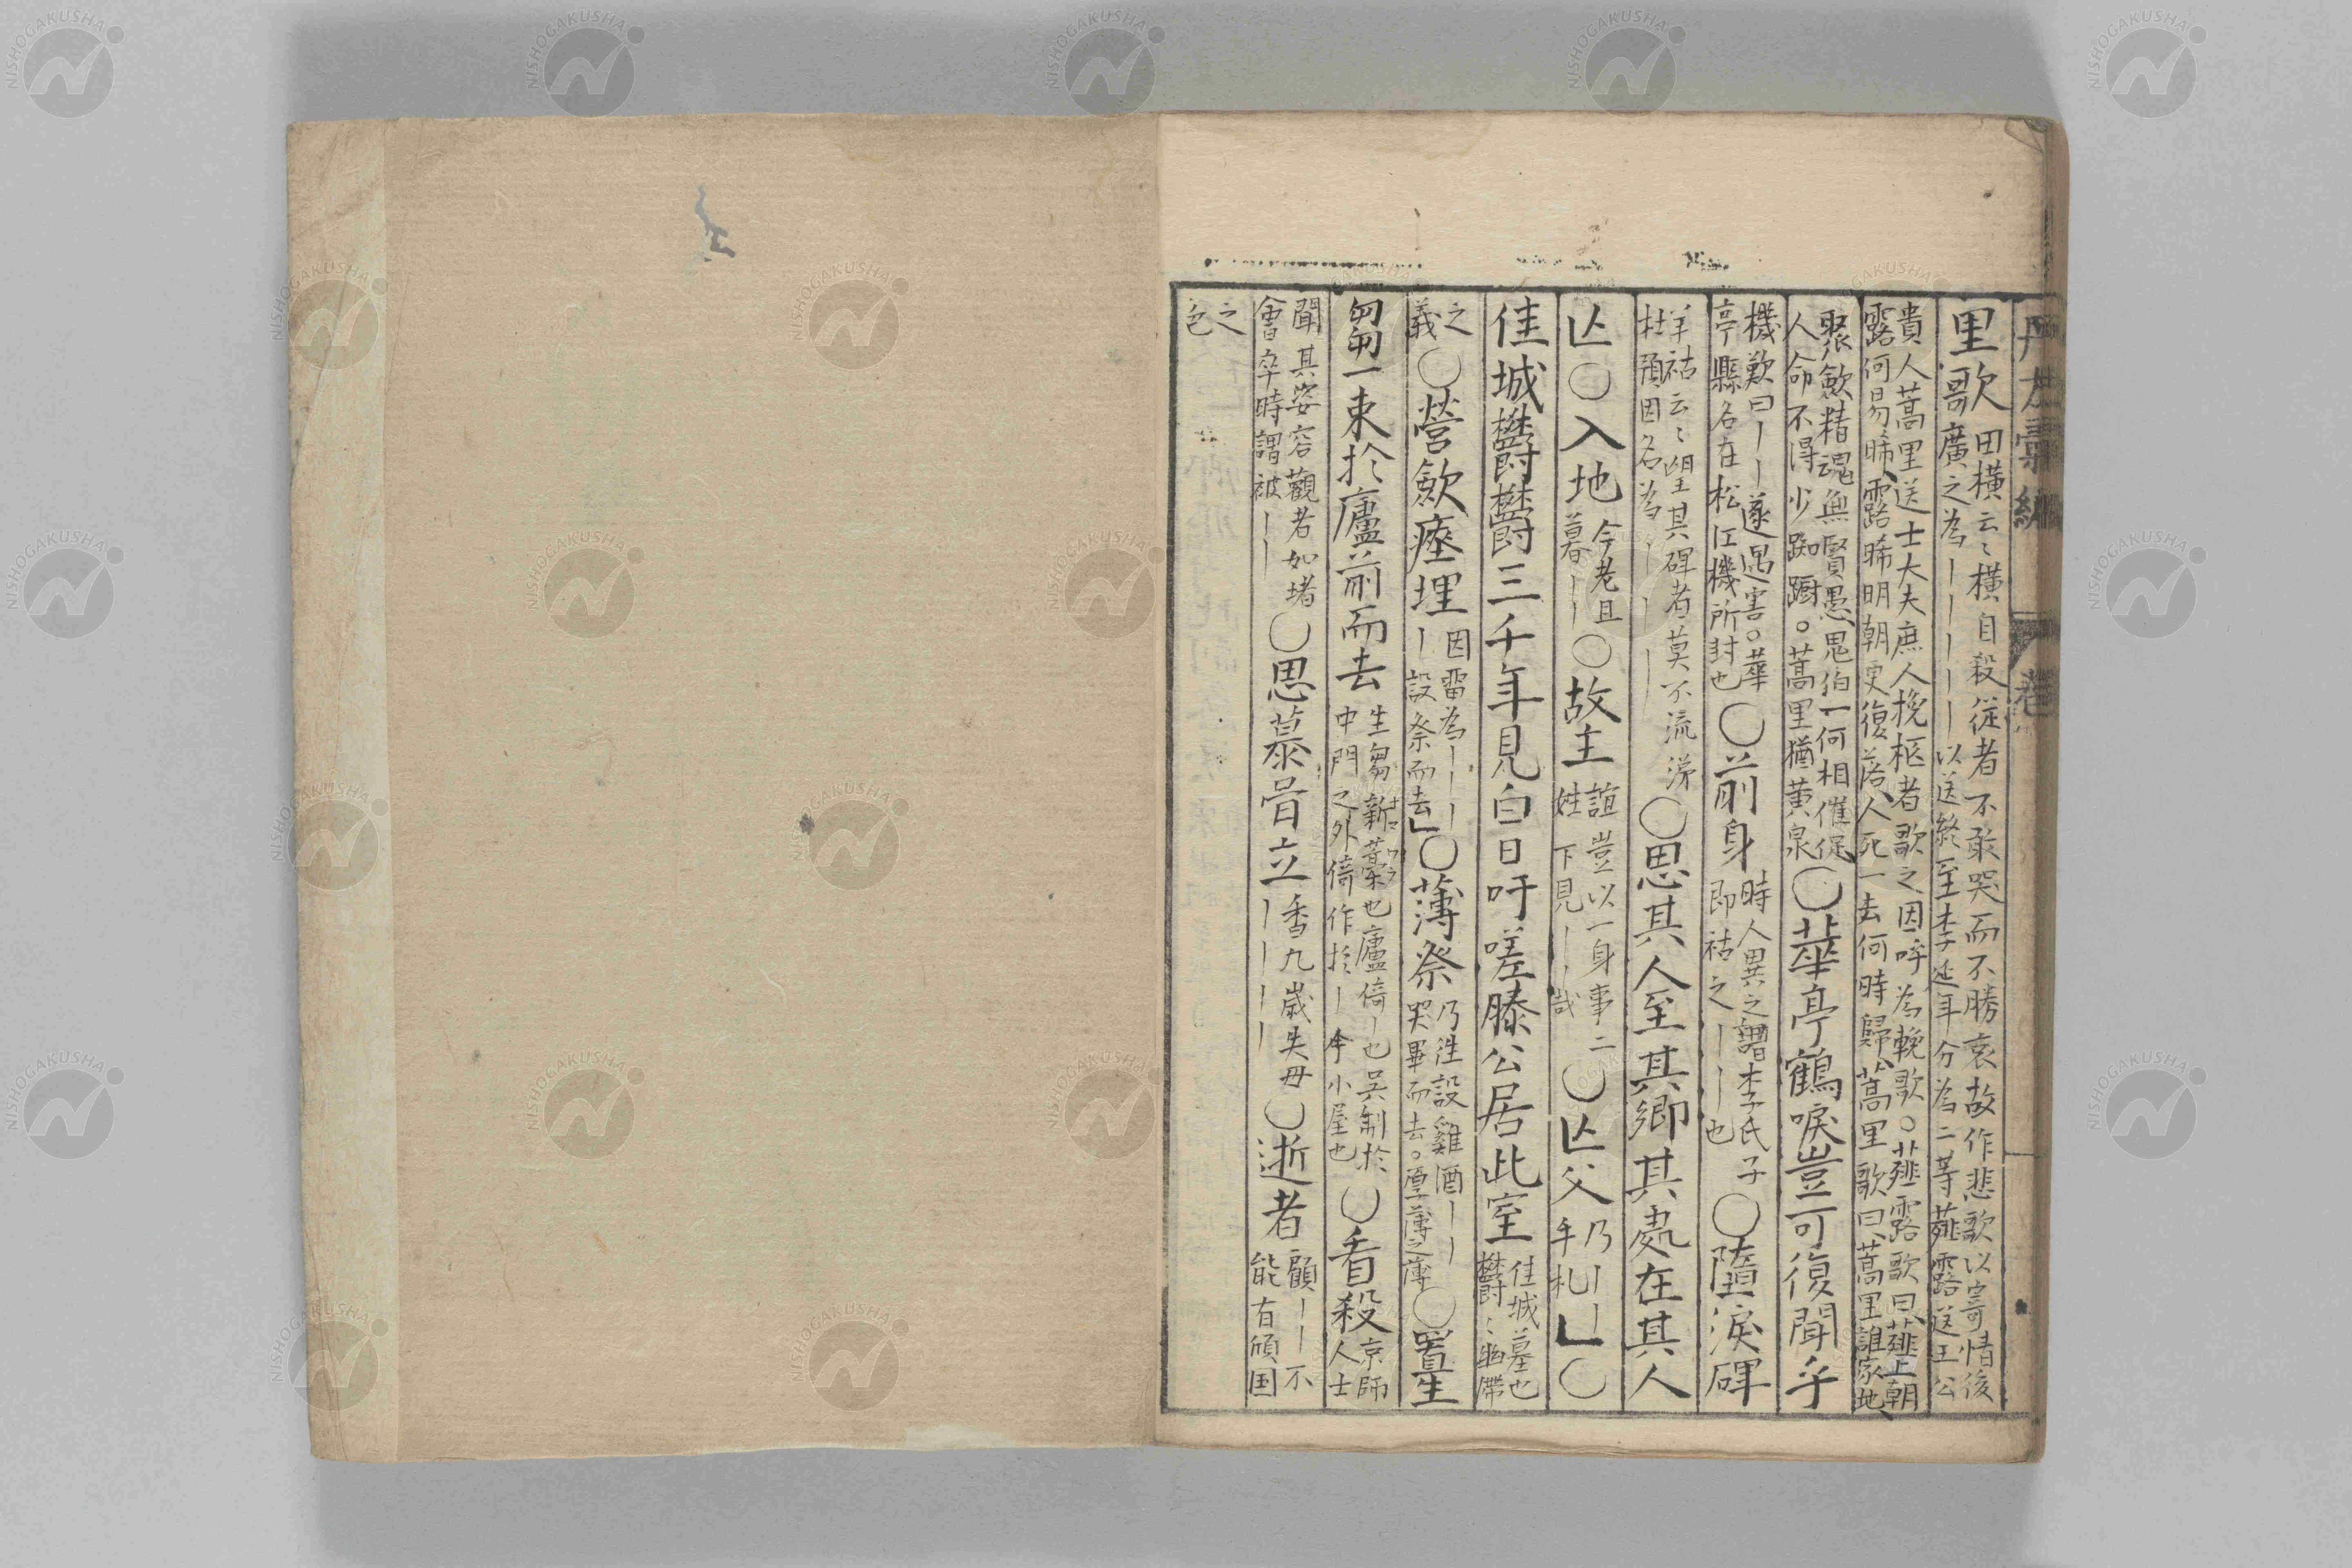 里歌 田橫云〻橫自殺従者不敢哭而不勝哀故作悲歌以寄情後
廣之為｜｜｜｜以送終至李延年分為二等薤露送王公
貴人蒿里送士大夫庶人挽柩者歌之因呼為輓歌。薤露歌曰薤上朝
露何易晞露晞明朝更復落人死一去何時歸蒿里歌曰蒿里誰家地
聚斂精魂無賢愚鬼伯一何相催促
人命不得少踟蹰。蒿里猶黄泉〇華亭鶴唳豈可復聞乎
機歎曰｜｜遂遇害。華
亭縣名在松江機所封也〇前身 時人異之謂李氏子
即祜之｜｜也〇墮淚碑
羊祜云〻望其碑者莫不流涕
杜預因名為｜｜｜〇思其人至其鄉其處在其人
亾〇入地 今老且
暮｜｜〇故主 誼豈以一身事二
姓下見｜｜哉〇亾父 乃｜｜
手札〇
佳城欝欝三千年見白日吁嗟滕公居此室 佳城墓也
欝〻幽滯
之
義〇營斂瘞埋 因留為｜｜｜
｜設祭而去〇薄祭 乃往設雞酒｜｜
哭畢而去。厚薄之薄〇置生
芻一束於廬前而去 生芻新藁也廬倚｜也吴制於
中門之外倚作於｜今小屋也〇看殺 京師
人士
聞其姿容觀者如堵
會卒時謂被｜｜〇思慕骨立 香九歳失母
｜｜｜｜〇逝者 顧｜｜不
能有傾国
之
色
NISHOGAKUSHA